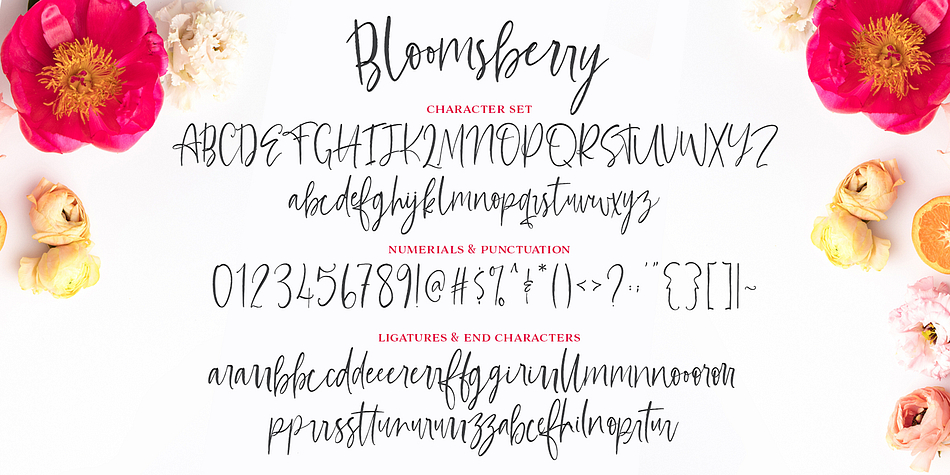 Bloomsberry
CHARACTER SET
ABCDEFGHIJKLMNOPQRSTUVWXYZ
abcdefghijklmnopqrstuvwxyz
NUMERIALS & PUNCTUATION
0123456789!@#$%^&*()<>?:;'"{}[]|~
LIGATURES & END CHARACTERS